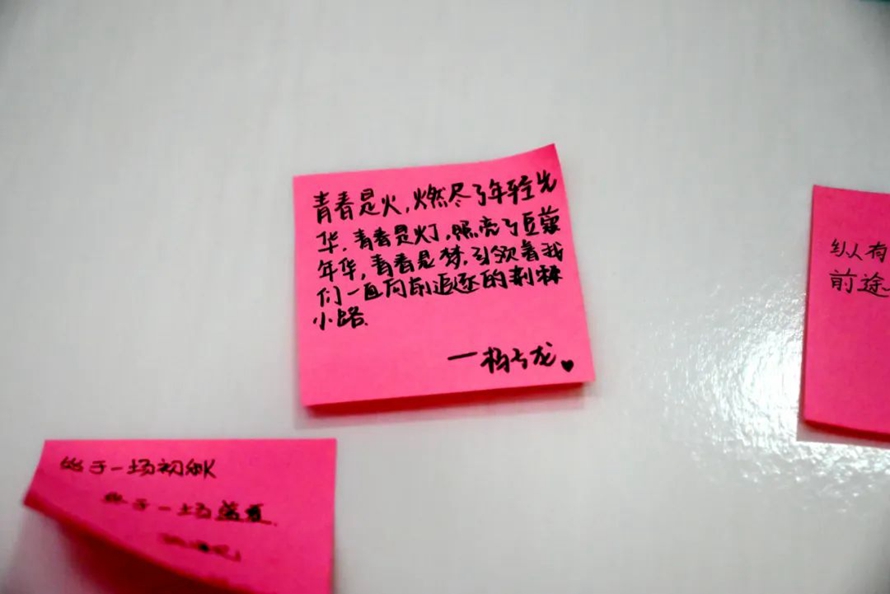 青春是火，燃尽了年轻光
华，青春是灯，照亮了豆蔻
年华，青春是梦，引领着我
们一直向前追逐的荆棘
小路.
始于一场初秋
终于一场盛夏.
纵有
前途